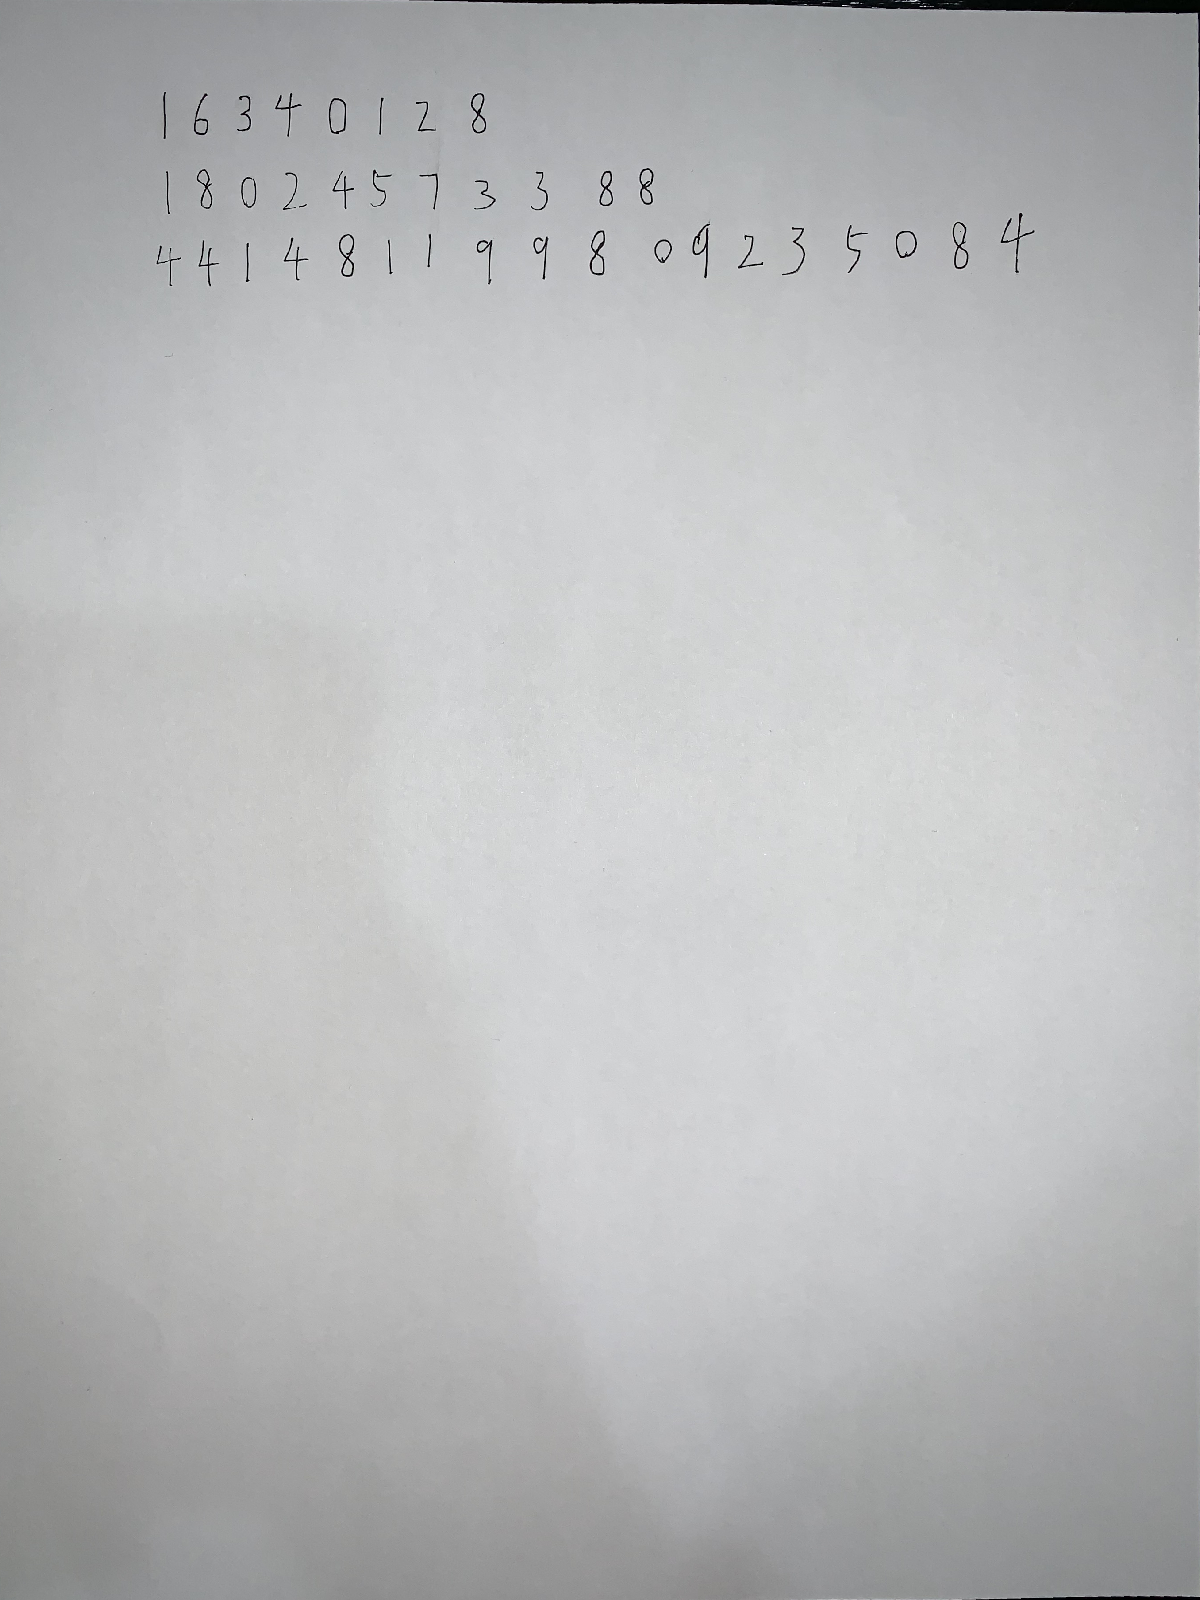 1 6 3 4 0 1 2 8
1 8 0 2 4 5 7 3 3 8 8
4 4 1 4 8 1 1 9 9 8 0 9 2 3 5 0 8 4